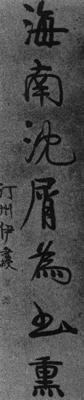 海南沈屑為山熏
汀州伊秉綬